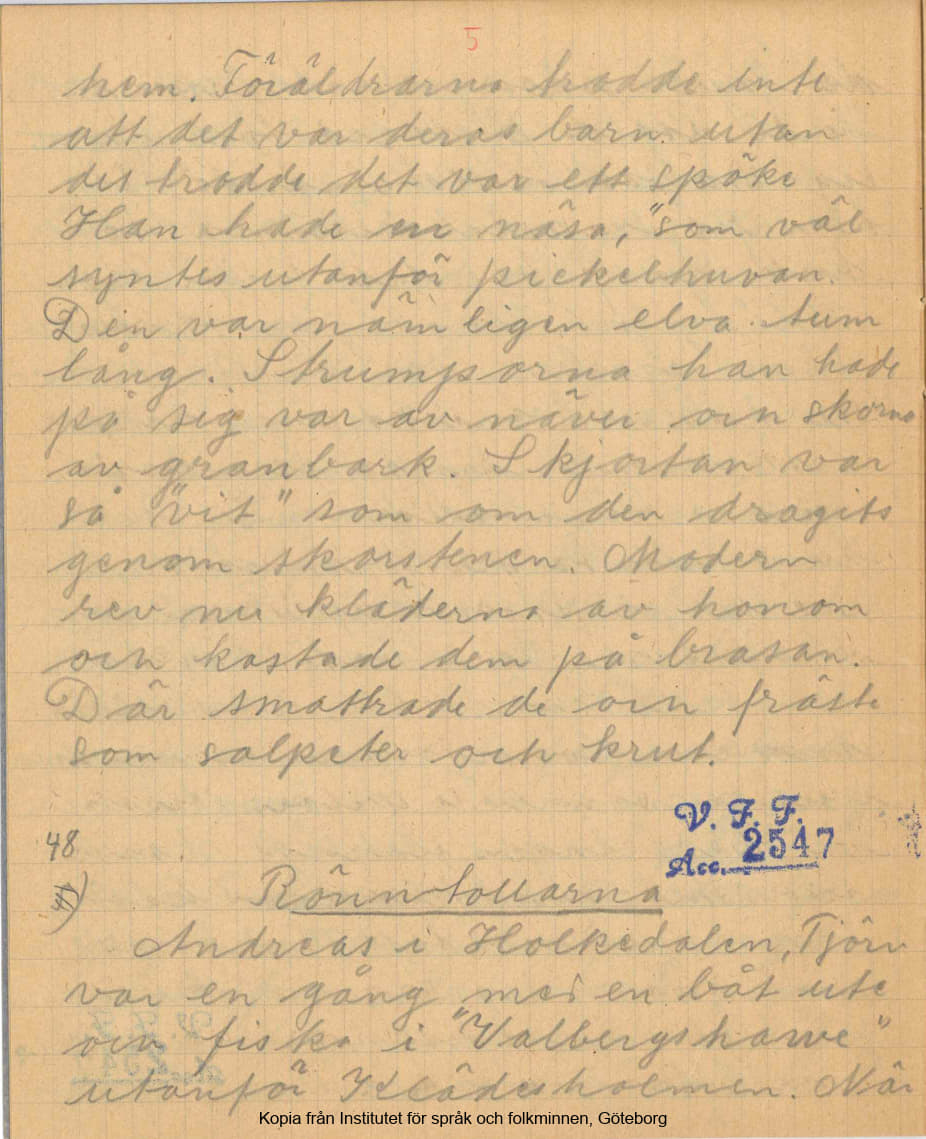 5
hem. Föräldrarna trodde inte
att det var deras barn utan
det trodde det var ett spöke
Han hade en näsa, "som väl
syntes utanför pickelhuvan.
Den var nämligen elva tum
lång. Strumporna han hade
på sig var av näver och skorna
av granbark. Skjortan var
så "vit" som om den dragits
genom skorstenen. Modern
rev nu kläderna av honom
och kastade dem på brasan.
Där smattrade de och fräste
som salpeter och krut.
V. F. F.
Acc. 2547
48
Rönntollarna
Andreas i Holkedalen, Tjörn
var en gång med en båt ute
och fiska i "Valbergshawe"
utanför Klädesholmen. När
Kopia från Institutet för språk och folkminnen, Göteborg